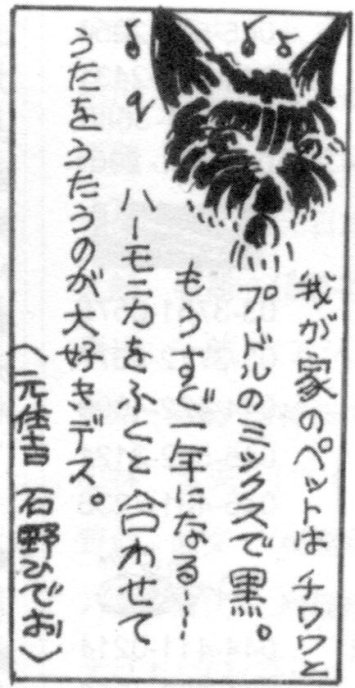 我が家のペットはチワワと
プードルのミックスで黒。
もうすぐ一年になる…
ハーモニカをふくと合わせて
うたをうたうのが大好きデス。
〈元住吉 石野ひでお〉